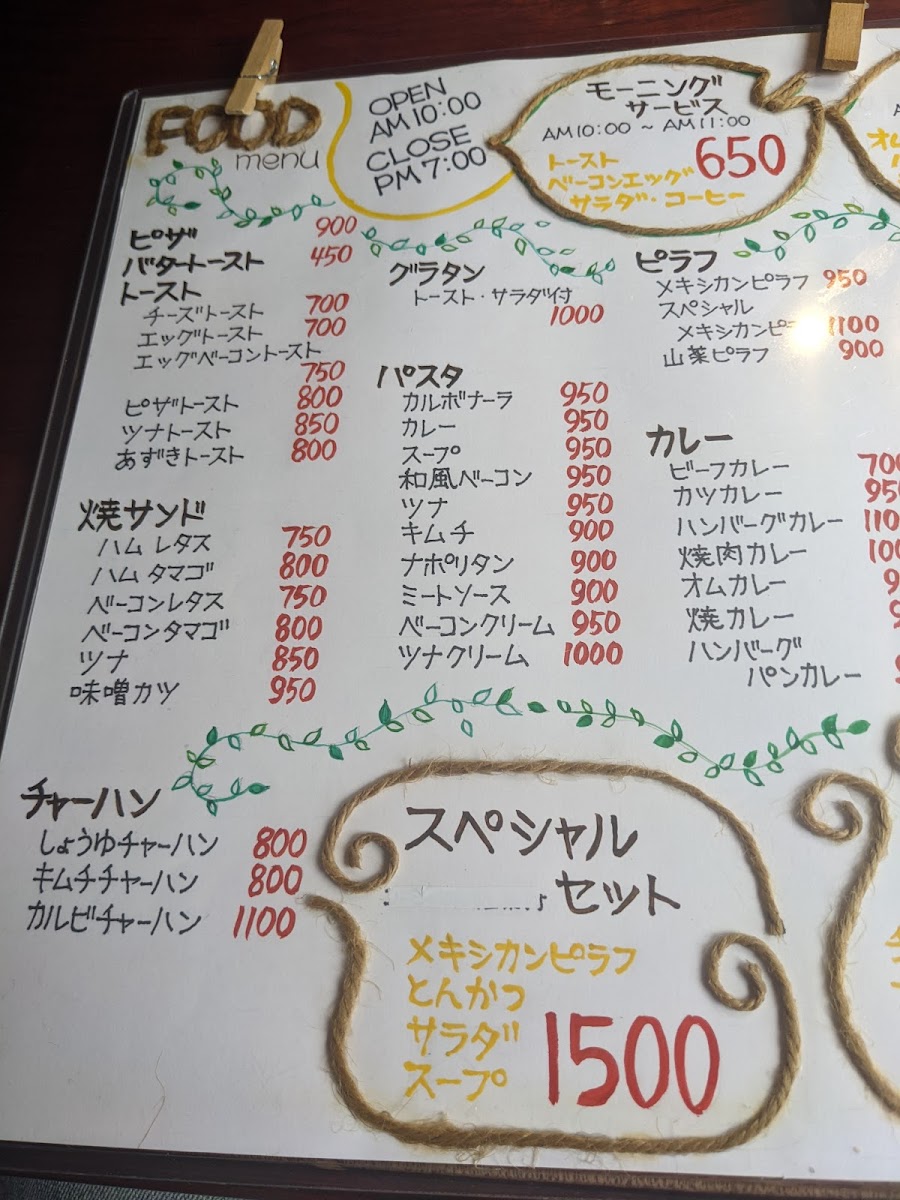 FOOD
menu
OPEN
AM 10:00
CLOSE
PM 7:00
モーニング
サービス
AM10:00 ~ AM11:00
トースト
ベーコンエッグ
サラダ・コーヒー
650
ピザ 900
バタートースト 450
トースト
チーズトースト 700
エッグトースト 700
エッグベーコントースト
750
ピザトースト 800
ツナトースト 850
あずきトースト 800
焼サンド
ハムレタス 750
ハムタマゴ 800
ベーコンレタス 750
ベーコンタマゴ 800
ツナ 850
味噌カツ 950
チャーハン
しょうゆチャーハン 800
キムチチャーハン 800
カルビチャーハン 1100
グラタン
トースト・サラダ付
1000
パスタ
カルボナーラ 950
カレー 950
スープ 950
和風ベーコン 950
ツナ 950
キムチ 900
ナポリタン 900
ミートソース 900
ベーコンクリーム 950
ツナクリーム 1000
ピラフ
メキシカンピラフ 950
スペシャル
メキシカンピラ 1100
山菜ピラフ 900
カレー
ビーフカレー 700
カツカレー 950
ハンバーグカレー
焼肉カレー
オムカレー
焼カレー
ハンバーグ
パンカレー
スペシャル
セット
メキシカンピラフ
とんかつ
サラダ
スープ
1500